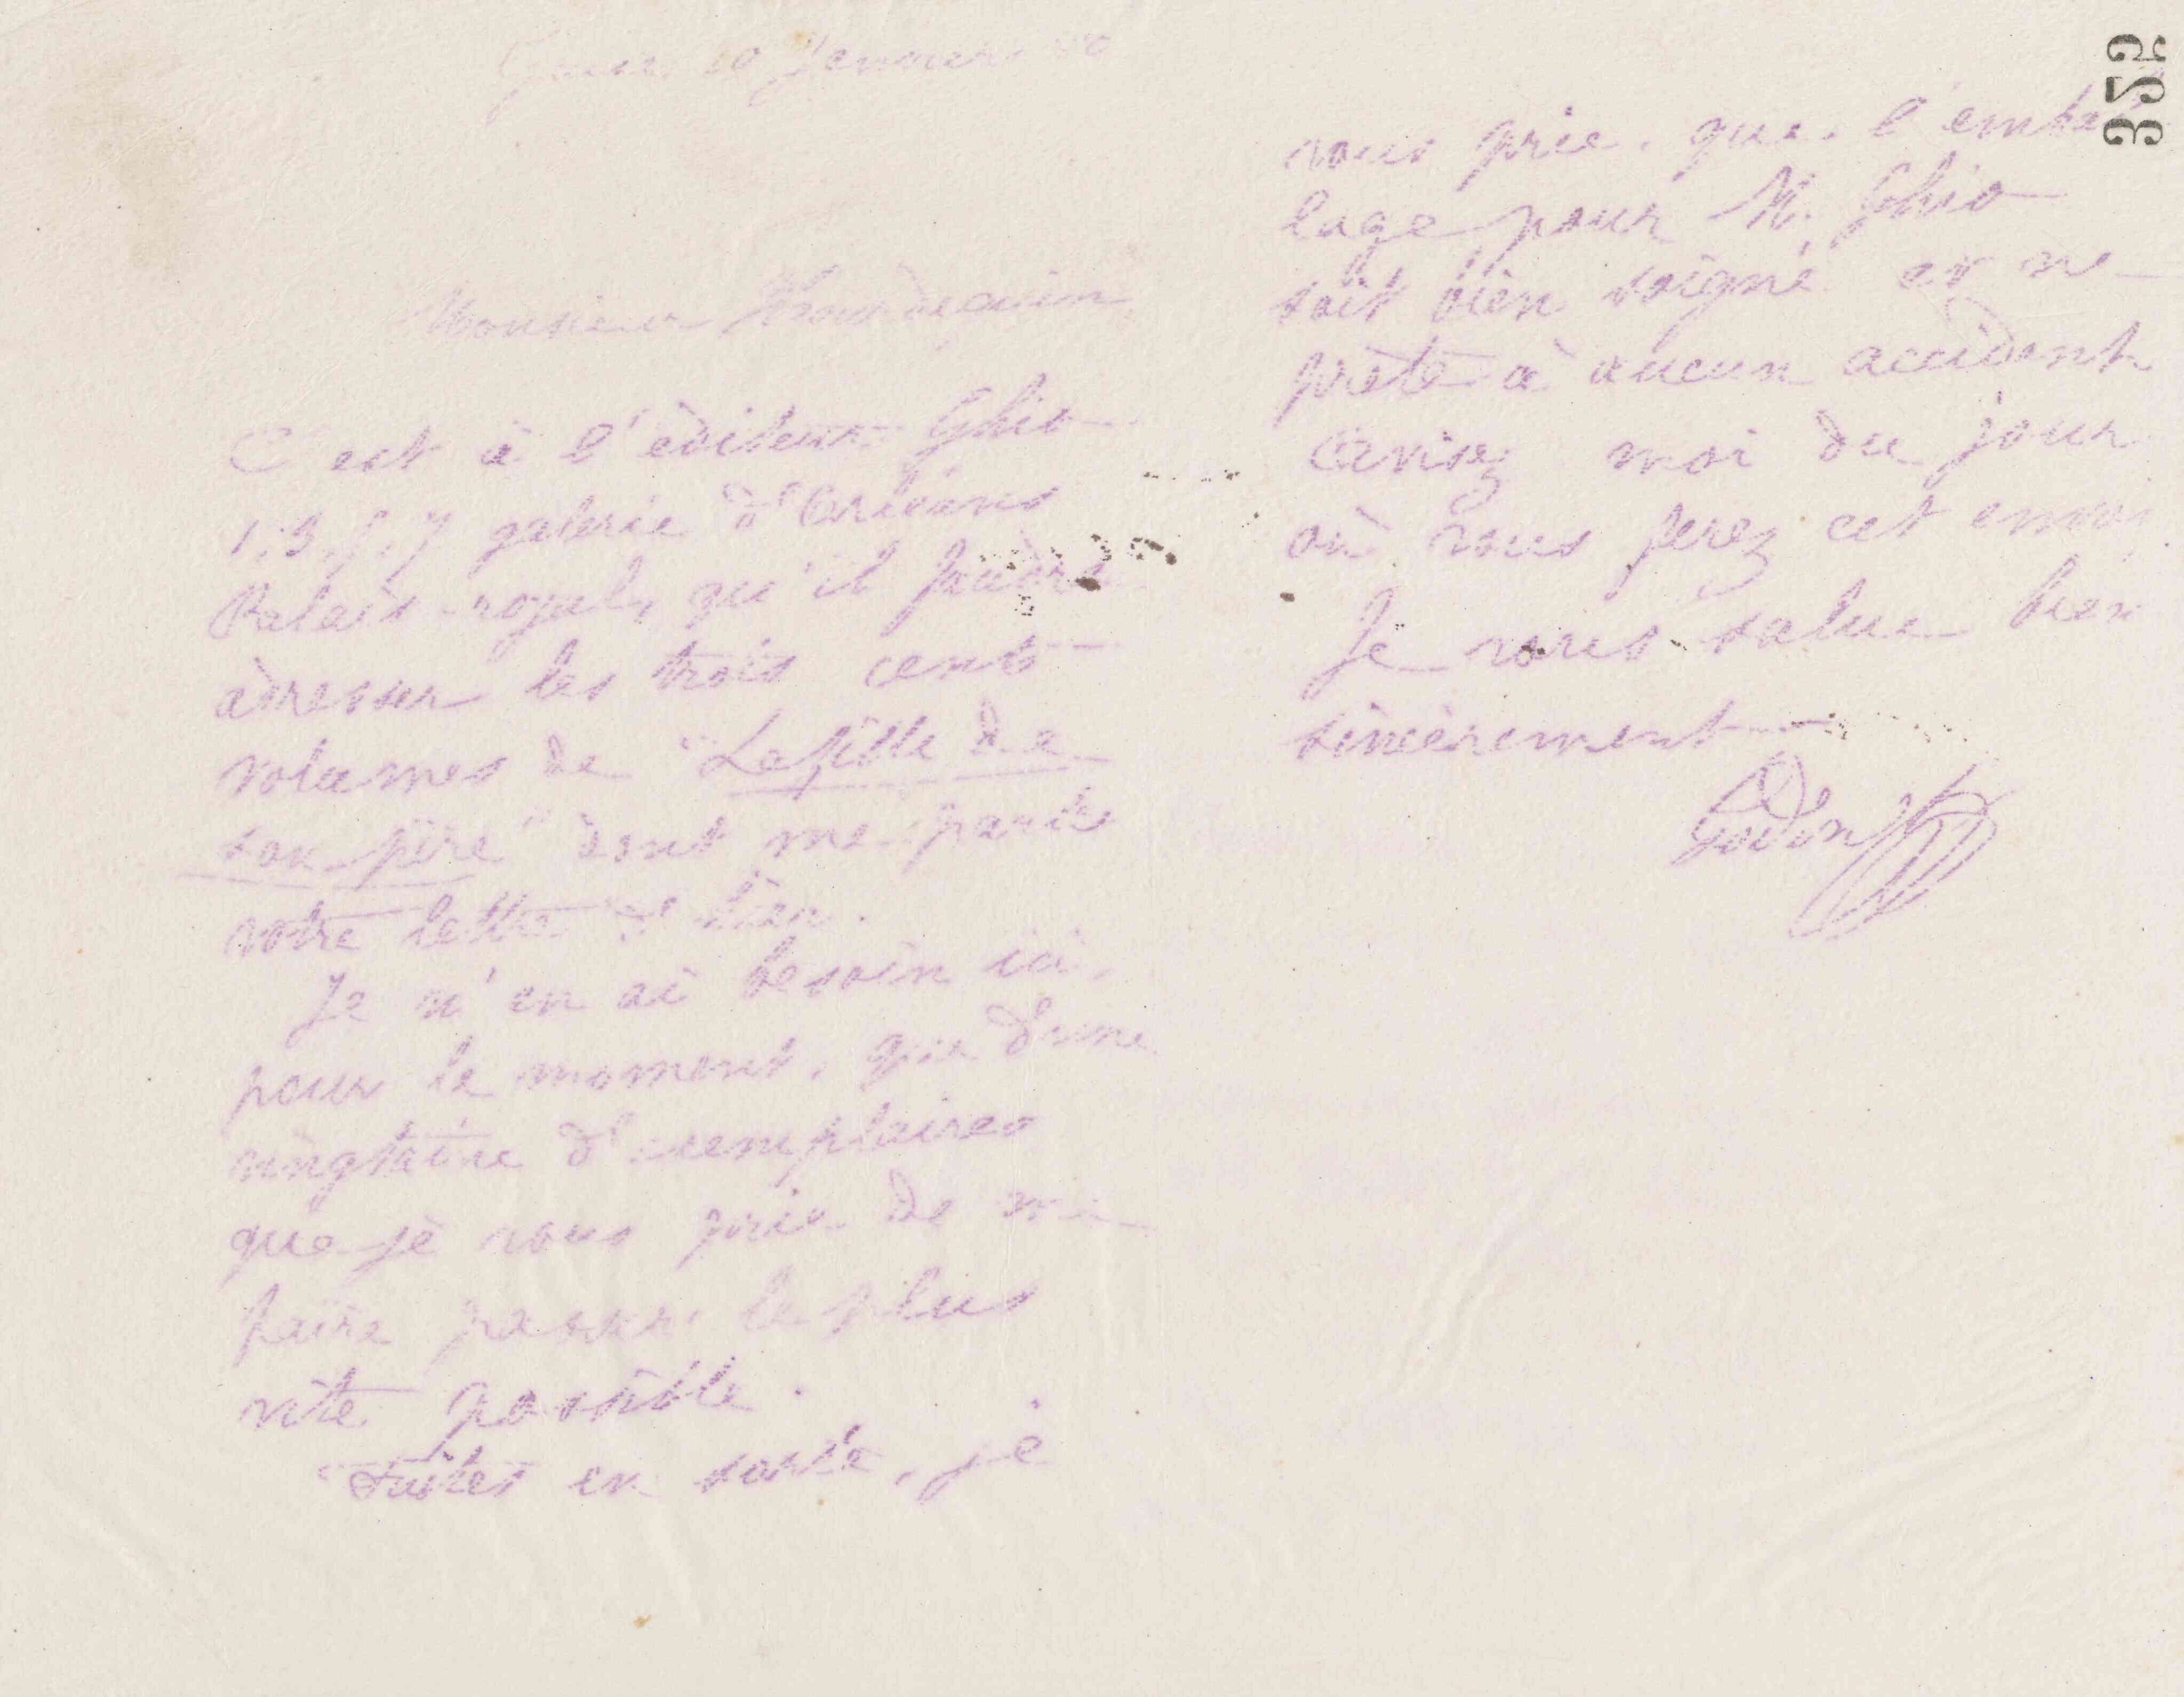 Guise 20 Janvier 80
Monsieur
C'est à l'éditeur Ghio
1.3.5.7 galerie d'Orléans
Palais-royal, qu'il faudra
adresser les trois cents
volumes de "La fille de
son père" dont me parle
votre lettre d'hier.
Je n'en ai besoin ici,
pour le moment, que d'une
vingtaine d'exemplaires
que je vous prie de me
faire passer le plus
vite possible.
Faites en sorte, je
vous prie, que l'embal
lage pour M. Ghio
soit bien soigné et ne
prête à aucun accident
Avisez moi du jour
où vous ferez cet envoi
Je vous salue bien
sincèrement
Godin
352